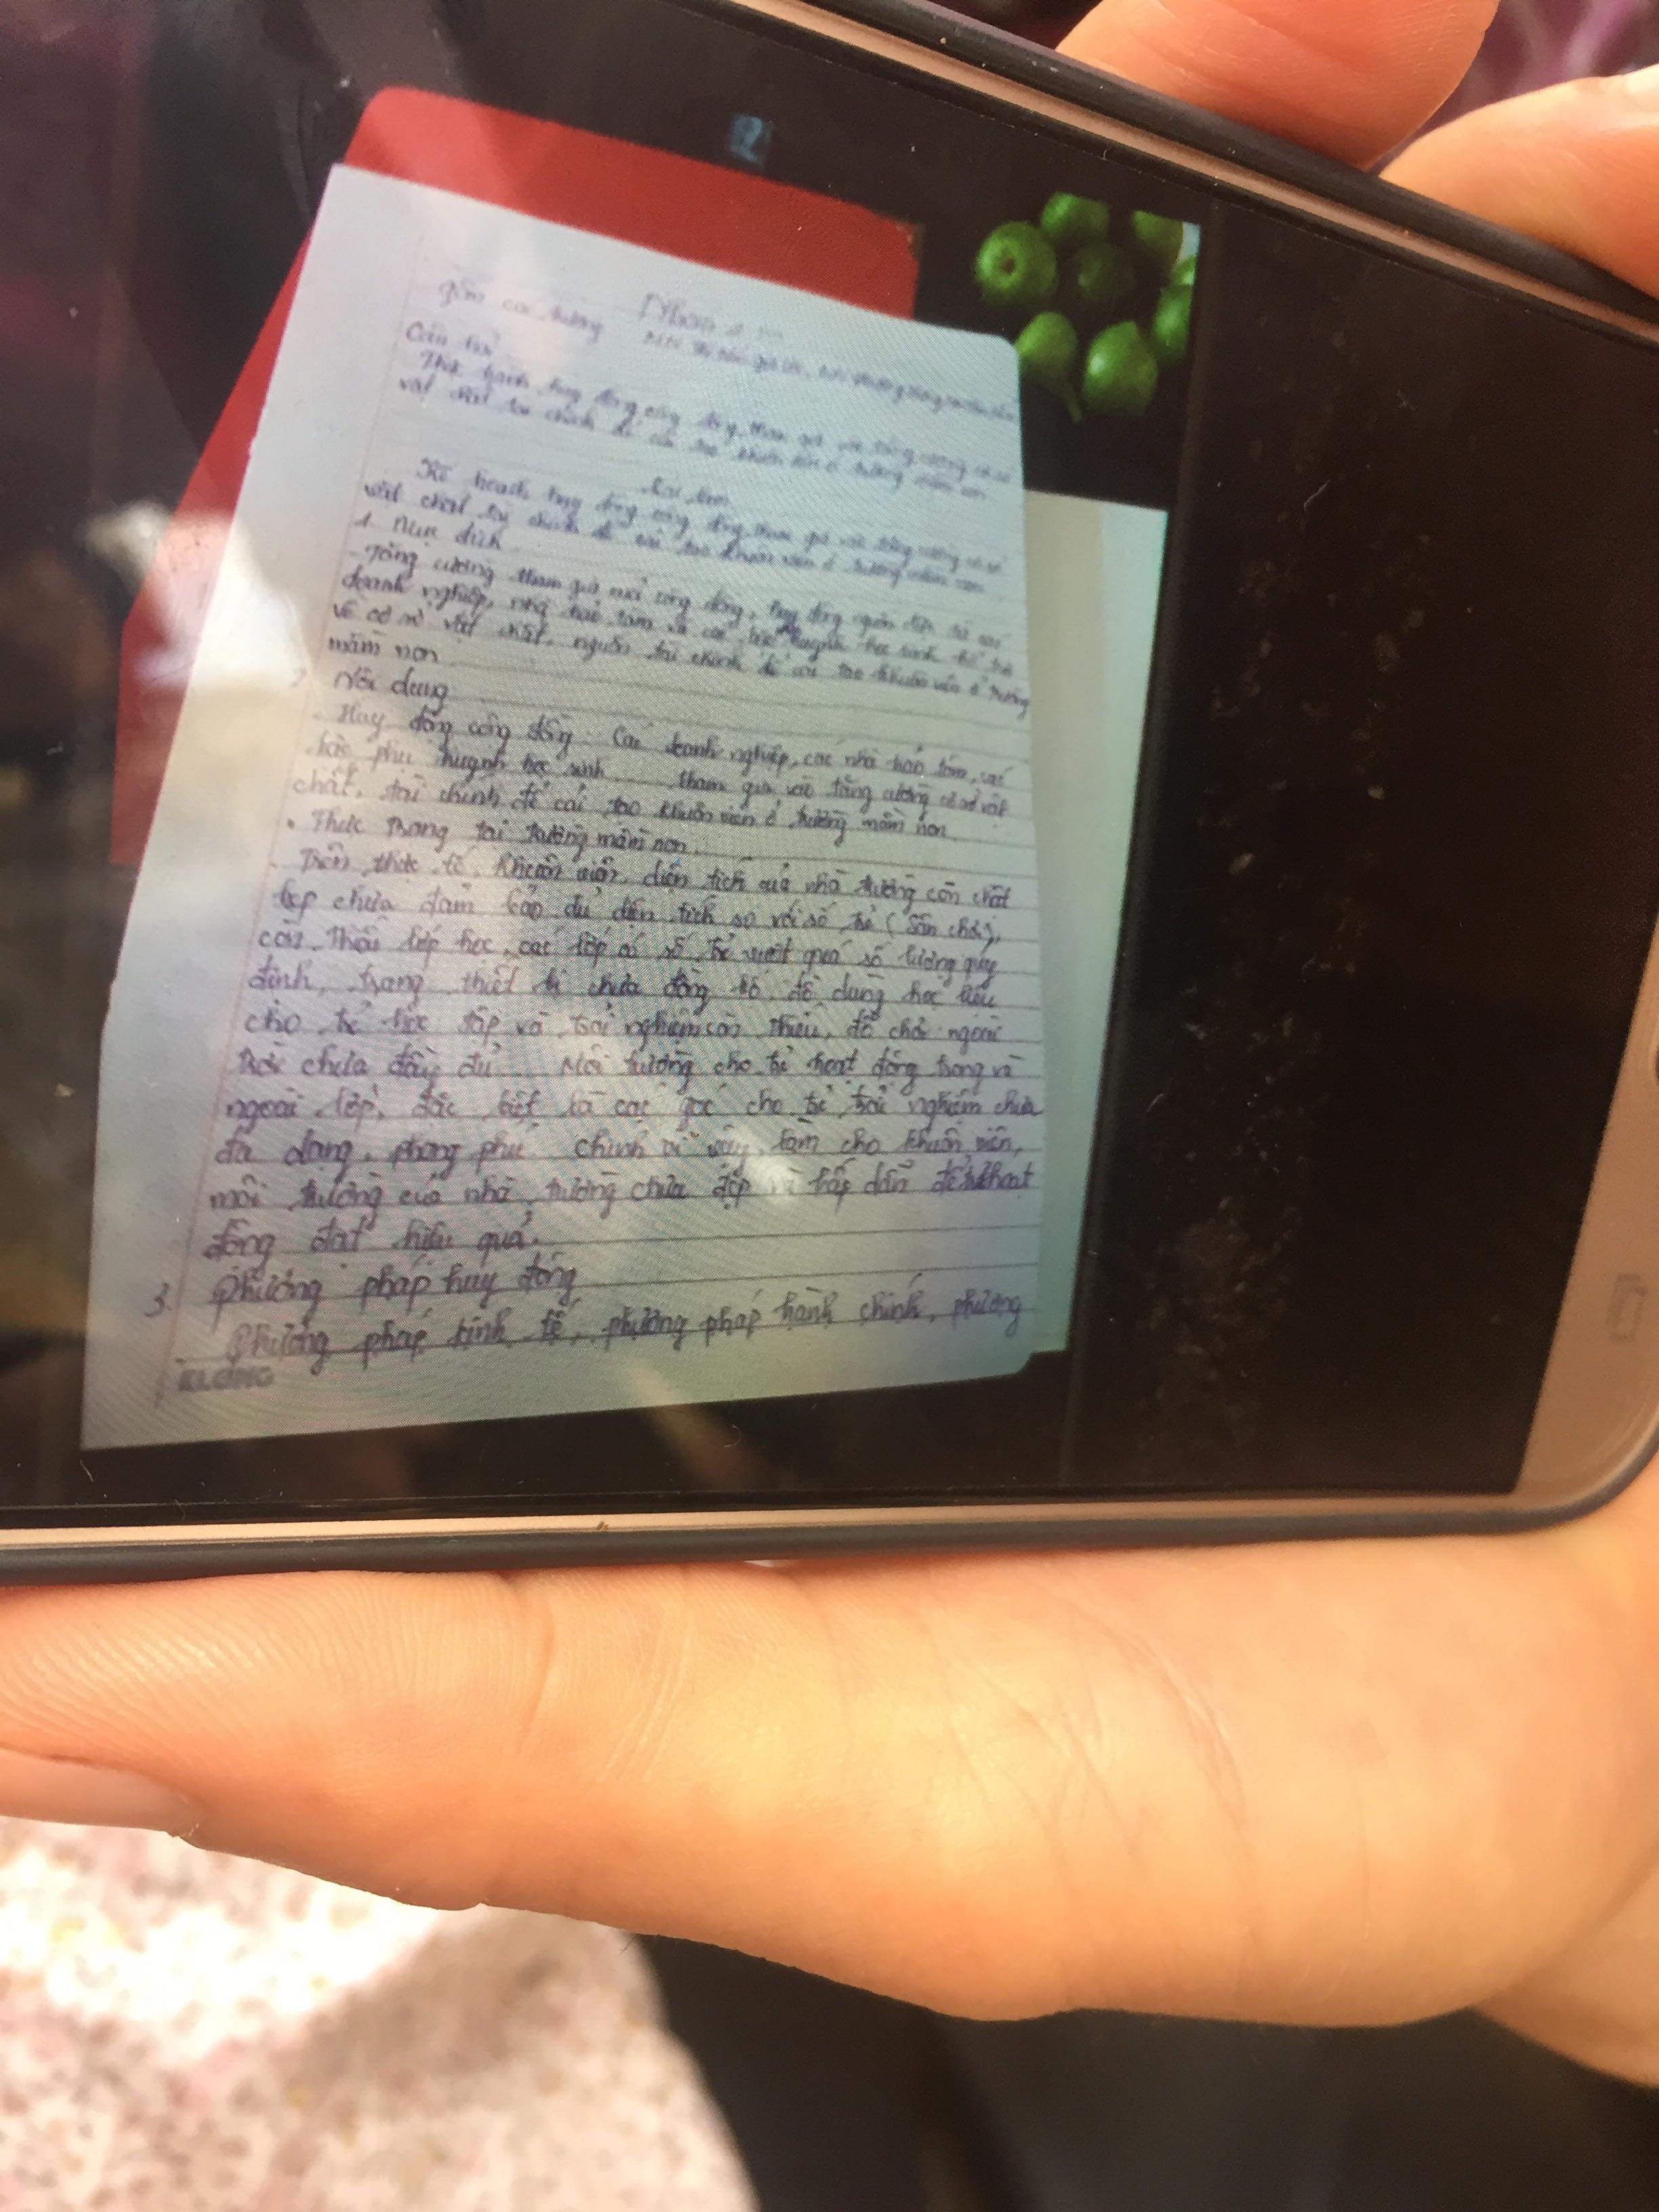 Câu hỏi
Thực hành huy động cộng đồng tham gia và tăng cường cơ sở
vật chất tài chính để cải tạo khuôn viên ở trường mầm non
Bài làm
Kế hoạch huy động cộng đồng tham gia vào tăng cường cơ sở
vật chất tài chính để cải tạo khuôn viên ở trường mầm non
1. Mục đích
- Tăng cường tham gia của cộng đồng, huy động quần
doanh nghiệp, nhà hảo tâm và các bậc phụ huynh học sinh hỗ trợ
về cơ sở vật chất, nguồn tài chính để cải tạo khuôn viên ở trường
mầm non
2. Nội dung
- Huy động cộng đồng: Các doanh nghiệp, các nhà hảo tâm, các
bậc phụ huynh học sinh ..... tham gia vào tăng cường cơ sở vật
chất, tài chính để cải tạo khuôn viên ở trường mầm non
• Thực trạng tại trường mầm non.
- Trên thực tế, khuôn viên, diện tích của nhà trường còn chật
hẹp chưa đảm bảo đủ diện tích so với số trẻ (sân chơi),
còn thiếu lớp học, các lớp có số trẻ vượt quá số lượng quy
định, trang thiết bị chưa đồng bộ, đồ dùng học liệu
cho trẻ học tập và trải nghiệm còn thiếu, đồ chơi ngoài
trời chưa đầy đủ ... Môi trường cho trẻ hoạt động trong và
ngoài lớp, đặc biệt là các góc cho trẻ trải nghiệm chưa
đa dạng, phong phú. Chính vì vậy, làm cho khuôn viên,
môi trường của nhà trường chưa đẹp và hấp dẫn để trẻ hoạt
động đạt hiệu quả.
3. Phương pháp huy động
Phương pháp kinh tế, phương pháp hành chính, phương
KLONG